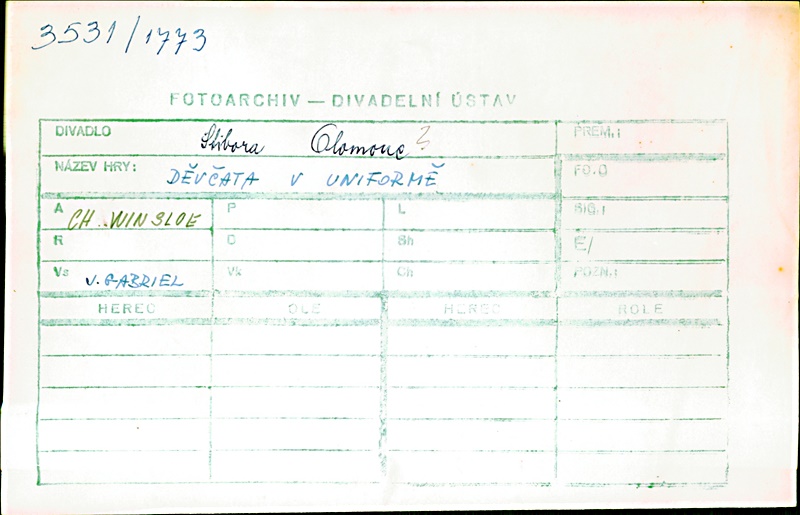 3531/1773
FOTOARCHIV — DIVADELNÍ ÚSTAV
DIVADLO Stibora Olomouc ? PREM.:
NÁZEV HRY: DĚVČATA V UNIFORMĚ FO.O
A CH. WINSLOE P L SIG.:
R D Sh E/
Vs J. GABRIEL Vk Ch POZN.:
HEREC OLE HEREC ROLE